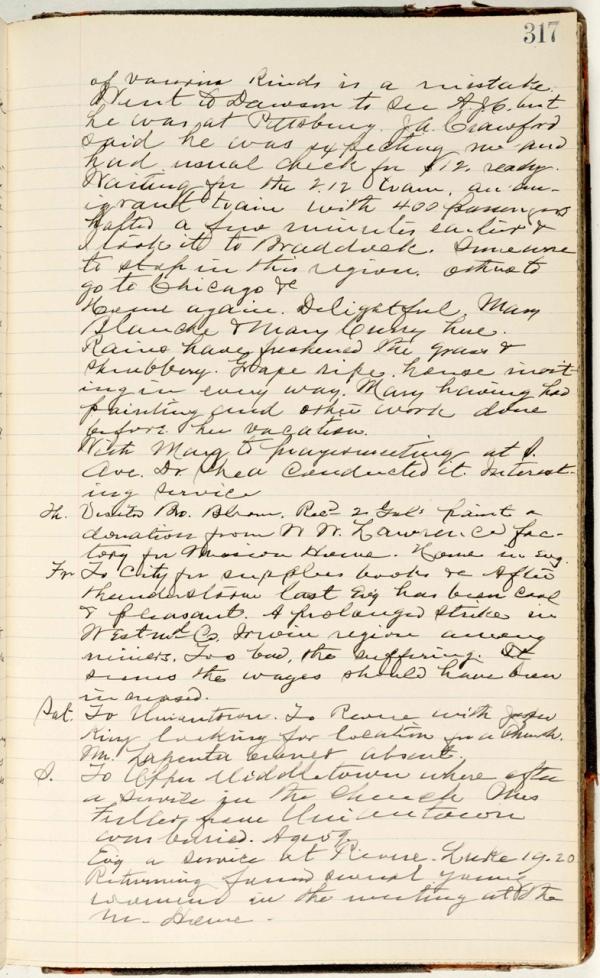 317
of various kinds is a mistake.
Went to Dawson to see A.J.C. but
he was at Pittsburg. Ja. Crawford
said he was expecting me and
had usual check for $12. ready.
Waiting for the 2.12 train, an em-
igrant train with 400 passengers
halted a few minutes earlier &
I took it to Braddock. Some were
to stop in this region. others to
go to Chicago &c
Home again. Delightful, Mary
Blanche & Mary Curry here.
Rains have freshened the grass &
shrubbery. Grape ripe. house invit
ing in every way. Mary having had
painting and other work done
before her vacation.
With Mary to prayermeeting at S.
Ave. Dr Shea conducted it. Interest-
ing service
Th. Visited Bro. Bloom. Recd 2 Gal's paint a
donation from W W. Lawrence fac-
tory for Mission Home. Home in Evg.
Fr To City for supplies books &c After
thunderstorm last Evg has been cool
& pleasant. A prolonged strike in
Westm'd Co. Irwin region among
miners. Too bad, the suffering. It
seems the wages should have been
increased.
Sat. To Uniontown. To Revere with
King looking for location for a Church.
Mr. owner absent.
S. To Upper Middletown where after
a service in the Church Mrs
Fuller from Uniontown
was buried. Aged
Evg a service at Revere. Luke 19.20
Returning found several young
women in the meeting at the
M. Home.